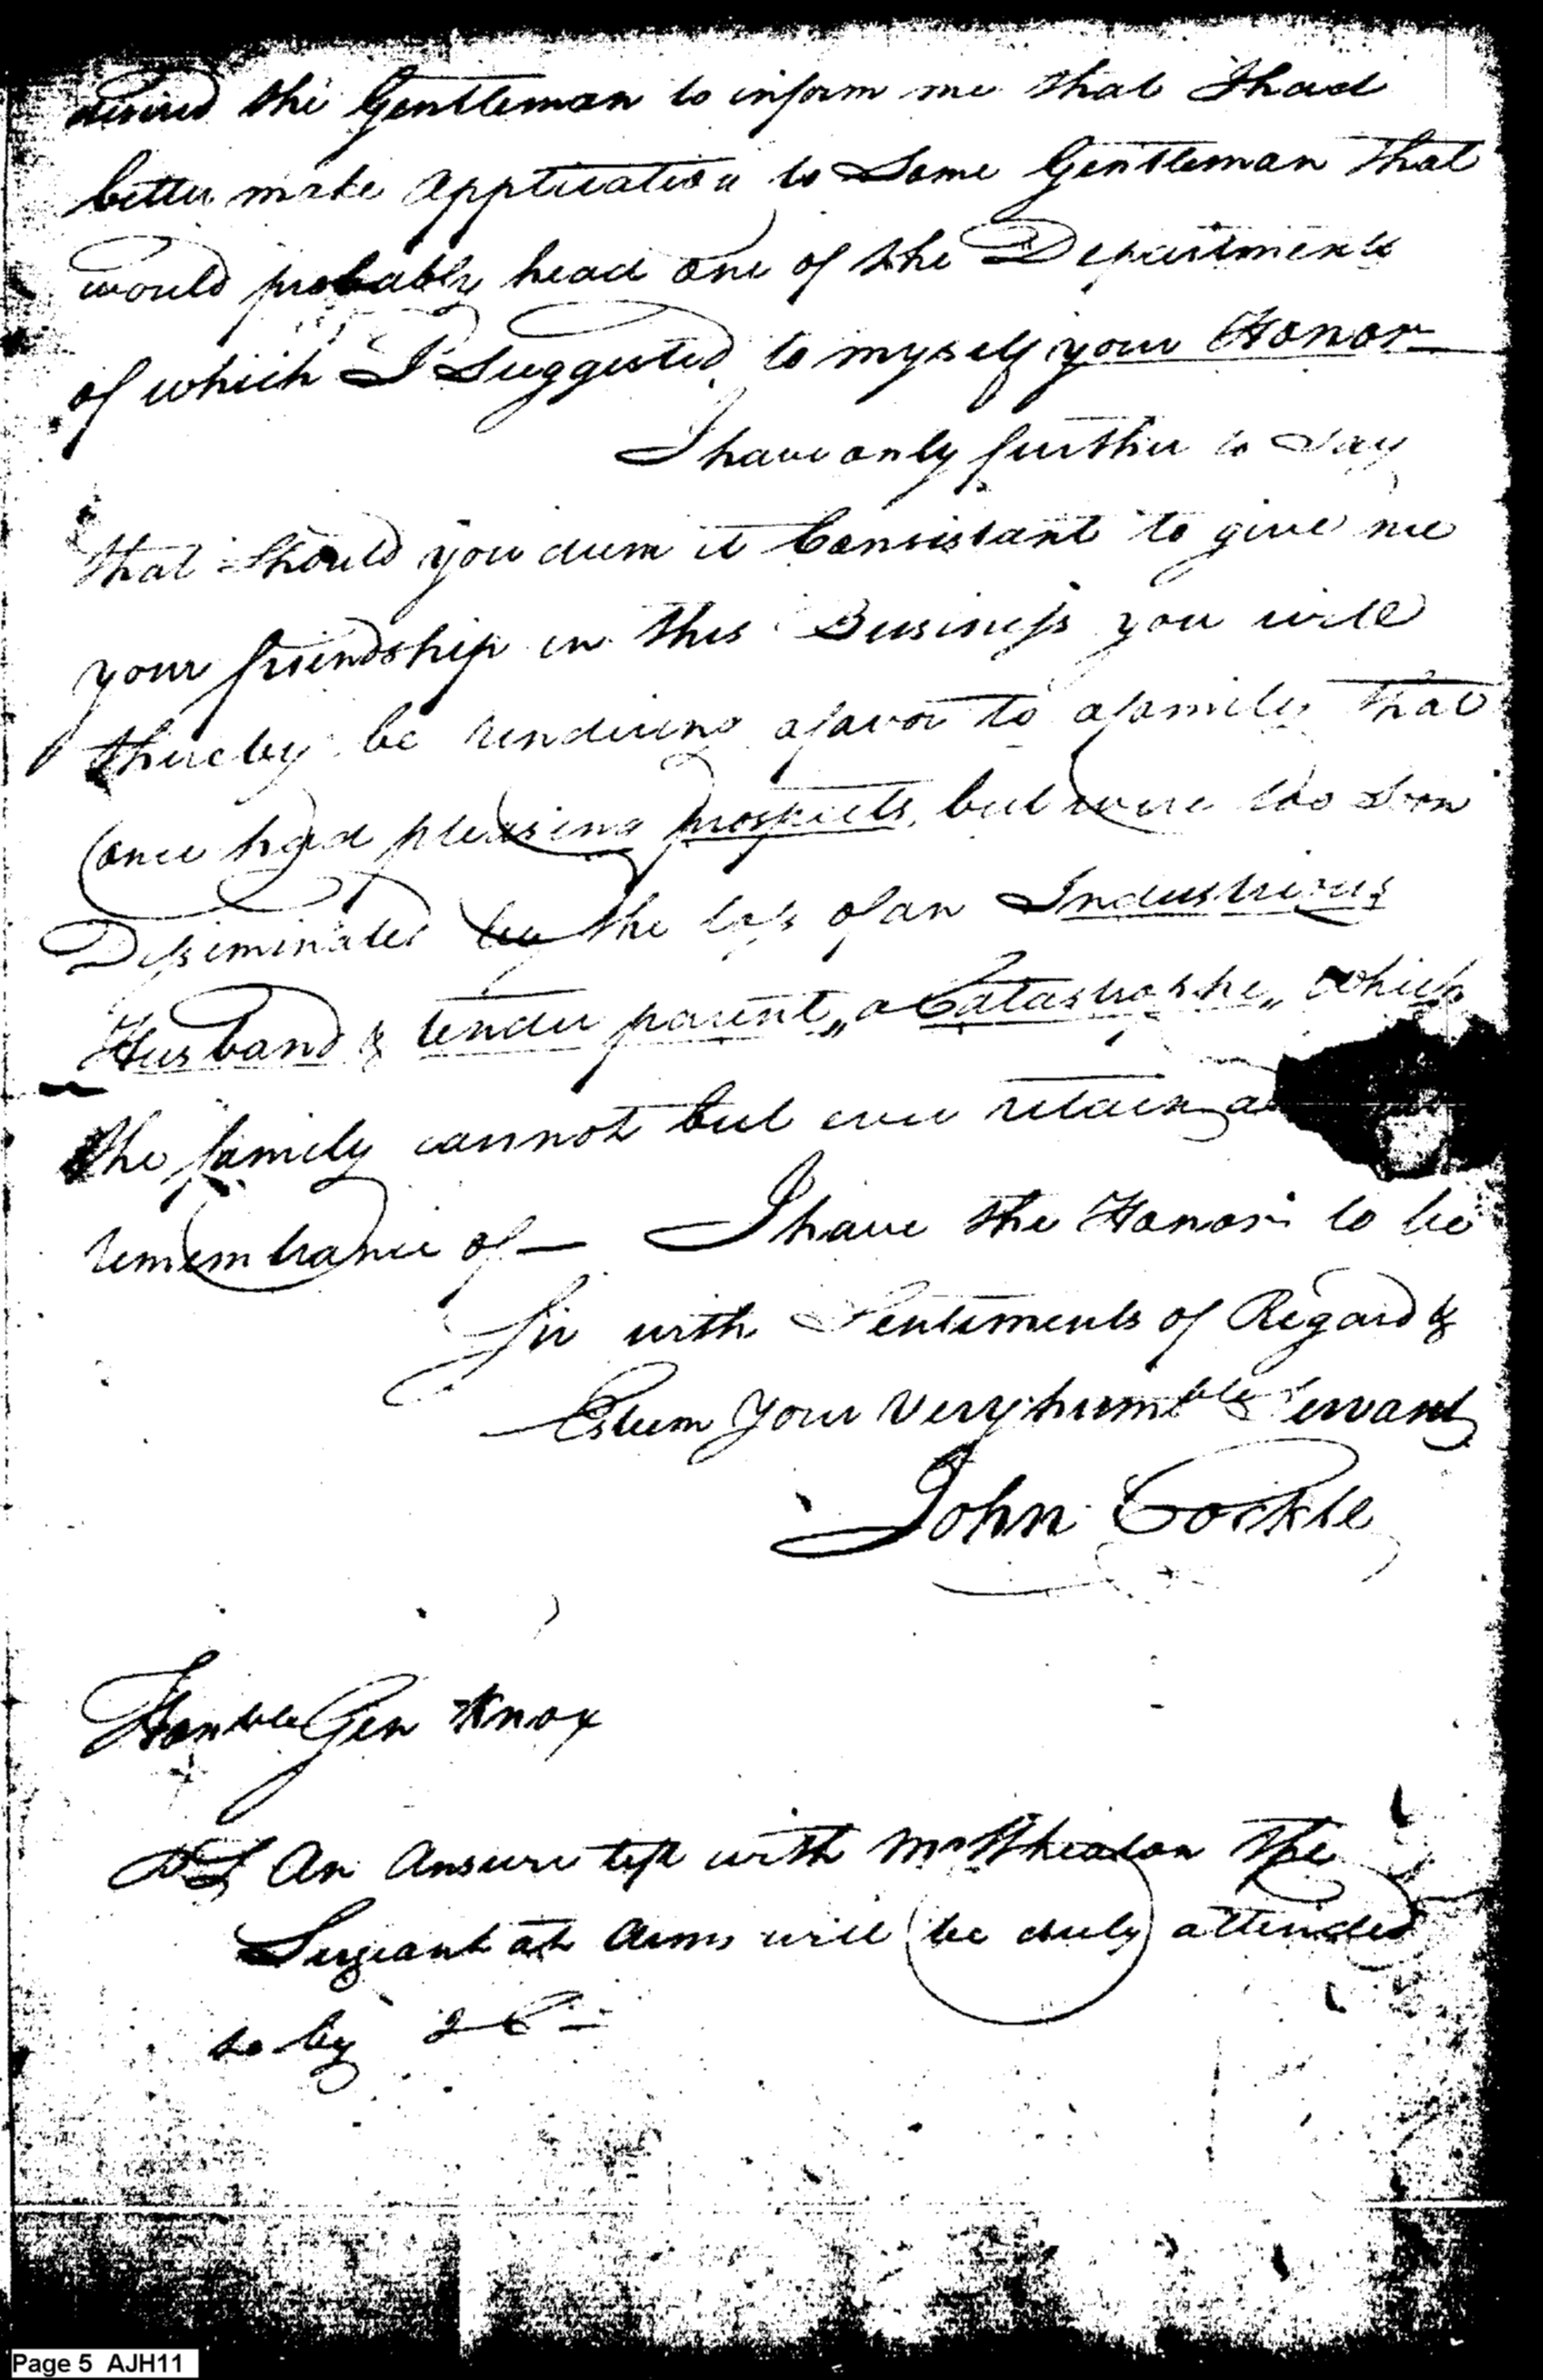 desired the Gentleman to inform me that I had
better make application to Some Gentleman that
would probably head one of the Departments
of which I Suggested to myself your Honor
I have only further to Say
that Should you deem it Consistant to give me
your friendship in this Business you will
thereby be rendering a favor to a family that
once had pleasing prospects, but were too Soon
Dissiminated by the loss of an Industrious
Husband & tender parent,, a Catastrophe,, which
the family cannot but ever retain a
remembrance of — I have the Honor to be
Sir with Sentiments of Regard &
Esteem Your Very humble Servant
John Cockle
Honble Gen Knox
PS An Answere left with Mr Wheaton the
Sergeant at Arms will be duly attended
to by
Page 5 AJH11